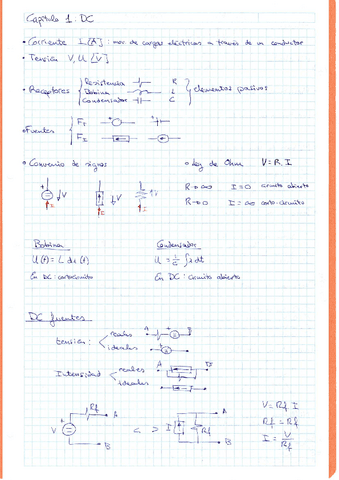 Capítulo 1: DC
• Corriente I, [A] : mov. de cargas eléctricas a través de un conductor
• Tensión V, U [V]
• Receptores Resistencia R
Bobina L
Condensador C
elementos pasivos
• Fuentes FT
FI
• Convenio de signos
V I
V I
V I
• Ley de Ohm V = R. I
R → ∞ I = 0 circuito abierto
R → 0 I = ∞ corto-circuito
Bobina
U(t) = L di(t)
En DC: cortocircuito
Condensador
U = 1/C ∫ i dt
En DC: circuito abierto
DC fuentes
tensión: reales A B
ideales
Intensidad reales A
ideales
V Rf A B
I Rf A B
V = Rf I
Rf = Rf
I = V/Rf